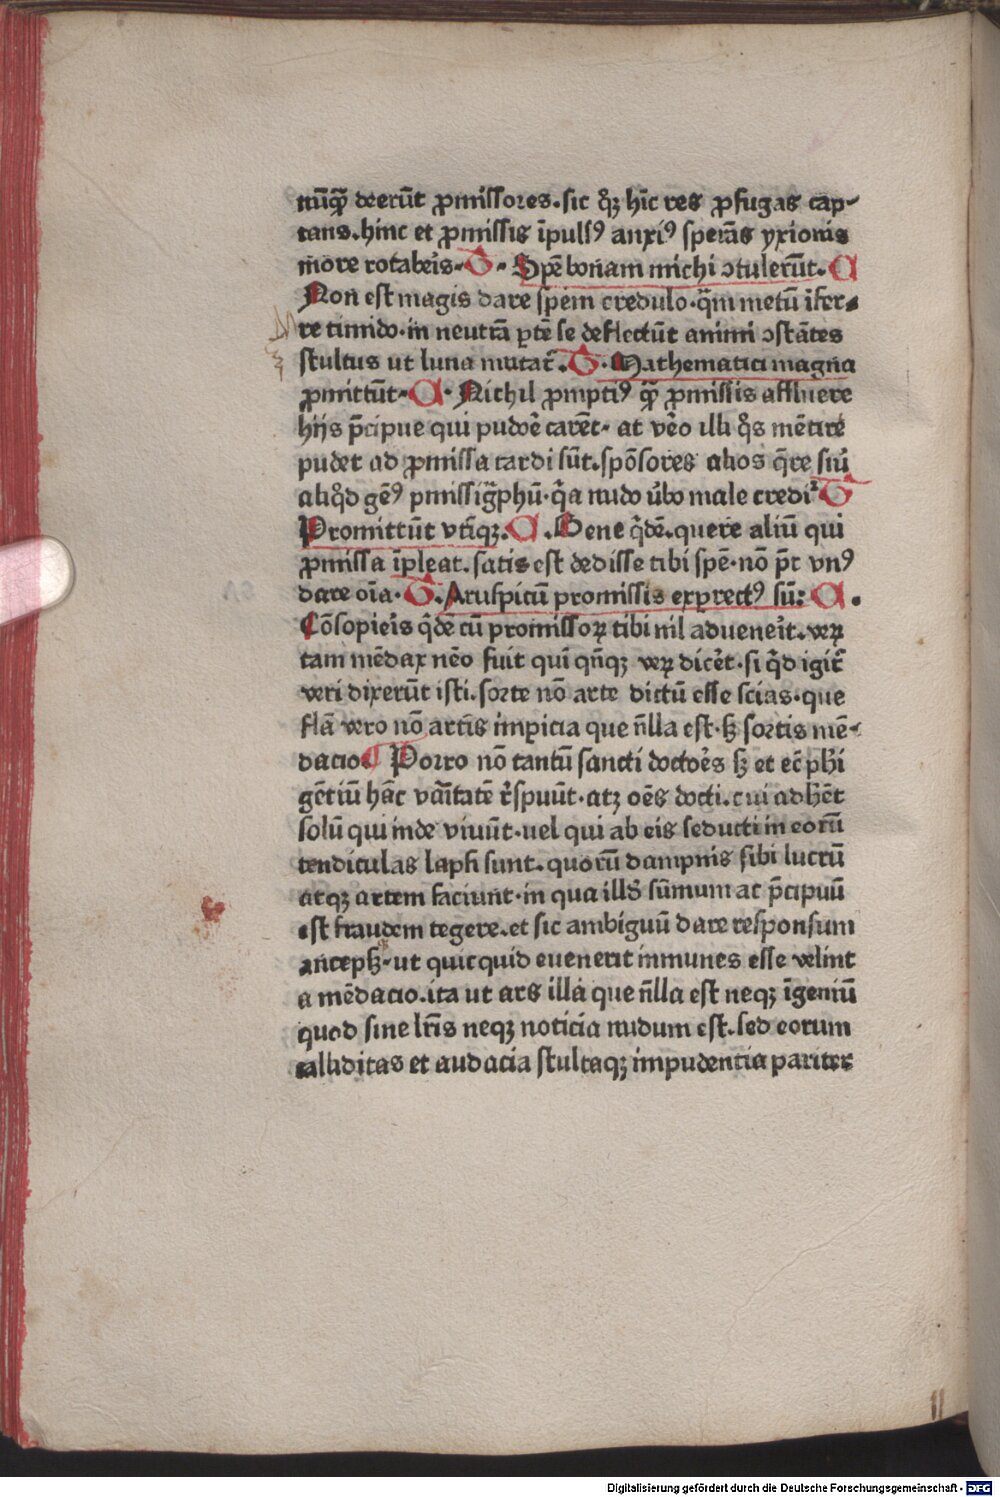 nūqꝫ deerūt ꝓmissores. sic qꝫ hīc res ꝓfugas cap-
tans. hinc et ꝓmissis īpulsꝰ anxiꝰ sperās yxionis
more rotaberis- G. Spē bonam michi ↄtulerūt. R
Non est magis dare spem credulo. q̄m metū īfer-
re timido. in neutrā ꝑtē se deflectūt animi ↄstātes
stultus ut luna mutat̄. G. Mathematici magna
ꝓmittūt- R. Nichil ꝓmptiꝰ qꝫ ꝓmissis affluere
hijs p̄cipue qui pudoē carēt- at vēo illi q̊s mētire
pudet ad ꝓmissa tardi sūt. spōsores alios q̄re siū
aliq̊d gēꝰ ꝓmissigraphū. q̄a nudo ūbo male credit̄ G
Promittūt vtiqꝫ. R. Bene q̄dē. quere aliū qui
ꝓmissa īpleat. satis est dedisse tibi spē. nō pt̄ vnꝰ
dare oīa. G. Aruspicū promissis exꝑrectꝰ sū: R.
Cōsopieris q̄dē cū promissoꝝ tibi nil aduenerit. veꝝ
tam mēdax nēo fuit qui qn̄qꝫ veꝝ dicēt. si q̄d igit̄
veri dixerūt isti. sorte nō arte dictū esse scias. que
flā vero nō artis impicia que n̄lla est. sꝫ sortis mē-
dacio. Porro nō tantū sancti doctoēs sꝫ et ec̄ phī
gētiū hāc vāitatē r̄spuūt. atqꝫ oēs docti. cui adhēt
solū qui inde viuūt. uel qui ab eis seducti in eorū
tendiculas lapsi sunt. quorū dampnis sibi lucrū
atqꝫ artem faciunt. in qua illis sūmum ac p̄cipuū
est fraudem tegere. et sic ambiguū dare responsum
ancepsqꝫ. ut quicquid euenerit inmunes esse velint
a mēdacio. ita ut ars illa que n̄lla est neqꝫ īgeniū
quod sine lr̄is neqꝫ noticia nudum est. sed eorum
calliditas et audacia stultaqꝫ impudentia pariter
11
Digitalisierung gefördert durch die Deutsche Forschungsgemeinschaft - DFG